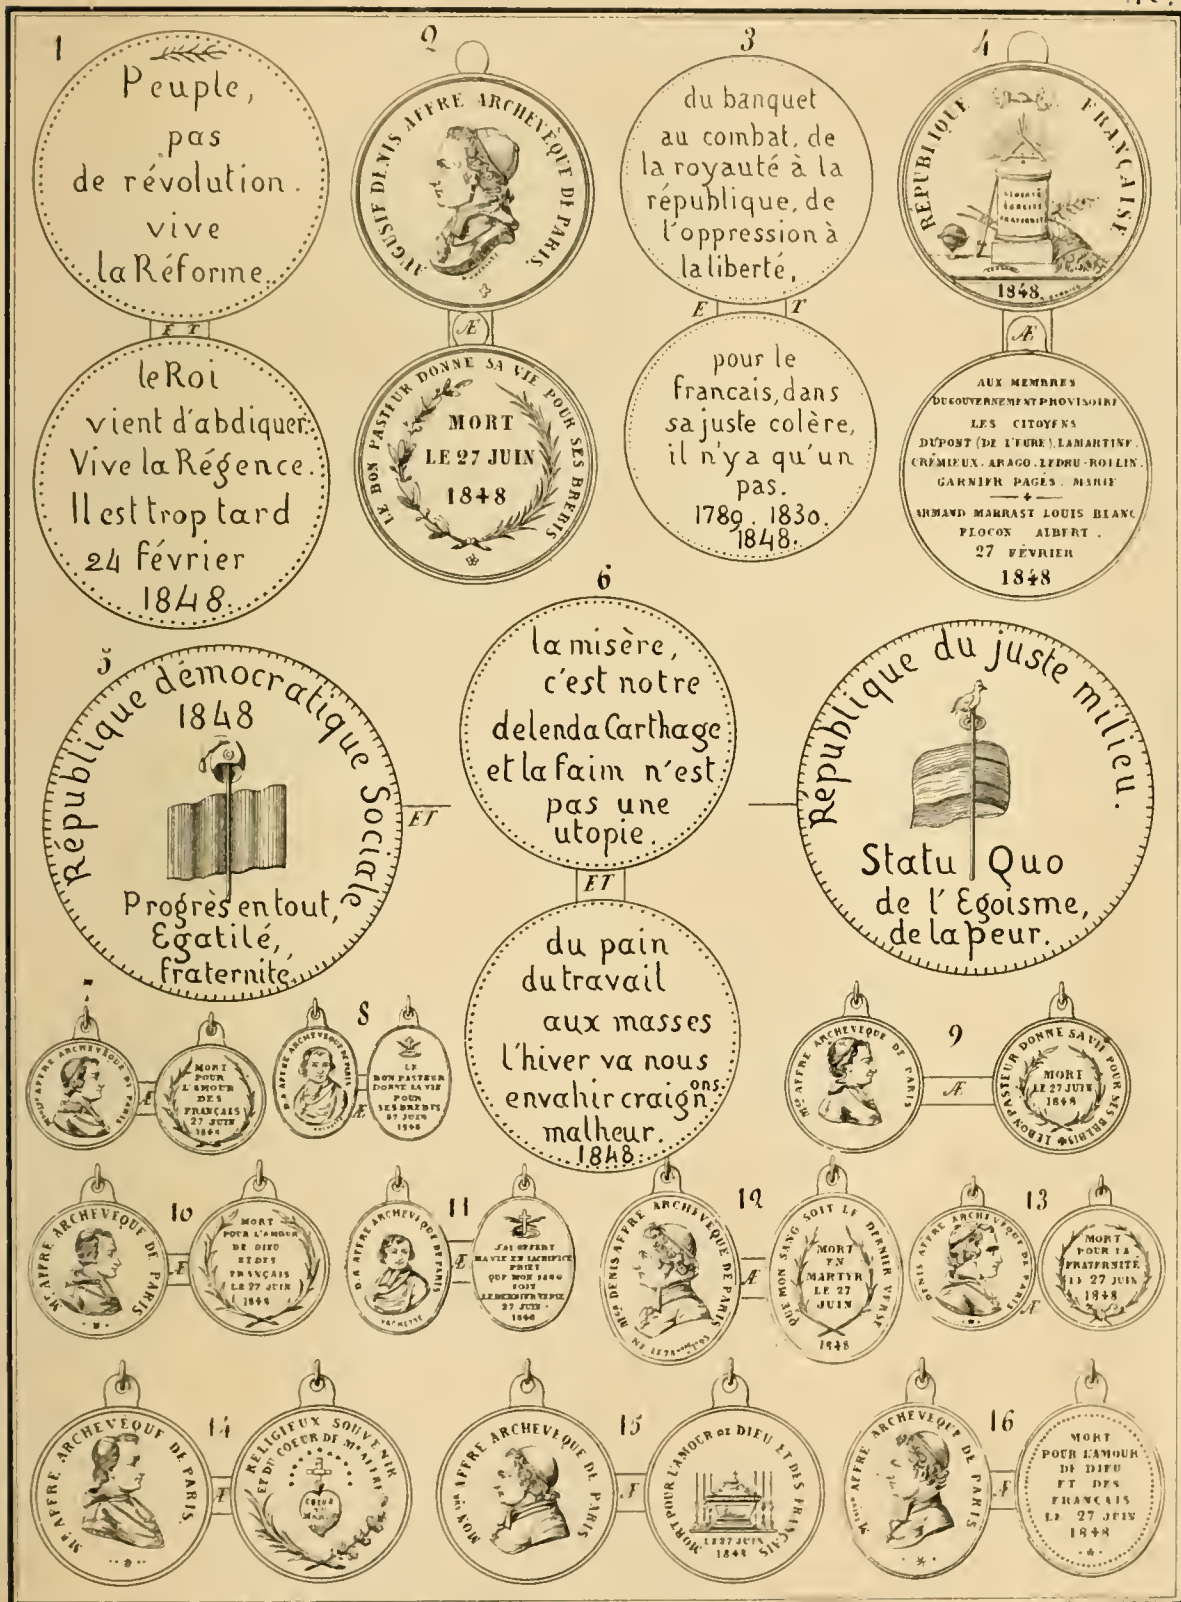 1
Peuple,
pas
de révolution.
vive
la Réforme.
ET
le Roi
vient d'abdiquer.
Vive la Régence.
Il est trop tard
24 février
1848.
2
AUGUSTE DENIS AFFRE ARCHEVÊQUE DE PARIS.
Æ
LE BON PASTEUR DONNE SA VIE POUR SES BREBIS
MORT
LE 27 JUIN
1848
3
du banquet
au combat, de
la royauté à la
république, de
l'oppression à
la liberté,
E T
pour le
francais, dans
sa juste colère,
il n'y a qu'un
pas.
1789. 1830.
1848.
4
RÉPUBLIQUE FRANÇAISE
LIBERTÉ
ÉGALITÉ
FRATERNITÉ
1848
Æ
AUX MEMBRES
DU GOUVERNEMENT PROVISOIRE
LES CITOYENS
DUPONT (DE L'EURE). LAMARTINE.
CRÉMIEUX. ARAGO. LEDRU-ROLLIN.
GARNIER PAGÈS. MARIE
ARMAND MARRAST LOUIS BLANC
FLOCON ALBERT.
27 FÉVRIER
1848
5
République démocratique Sociale
1848
Progrès en tout,
Egatilé,
fraternité,
ET
République du juste milieu.
Statu Quo
de l'Egoisme,
de la peur.
6
la misère,
c'est notre
delenda Carthage
et la faim n'est
pas une
utopie.
ET
du pain
du travail
aux masses
l'hiver va nous
envahir craignons
malheur.
1848.
AFFRE ARCHEVÊQUE DE PARIS
MORT
POUR
L'AMOUR
DES
FRANÇAIS
27 JUIN
1848
8
D. A AFFRE ARCHEVÊQUE DE PARIS
Æ
LE
BON PASTEUR
DONNE LA VIE
POUR
SES BREBIS
27 JUIN
1848
9
Mgr AFFRE ARCHEVÊQUE DE PARIS
Æ
LE BON PASTEUR DONNE SA VIE POUR SES BREBIS
MORT
LE 27 JUIN
1848
10
Mgr AFFRE ARCHEVÊQUE DE PARIS
Æ
MORT
POUR L'AMOUR
DE DIEU
ET DES
FRANÇAIS
LE 27 JUIN
1848
11
D. A AFFRE ARCHEVÊQUE DE PARIS
VACHETTE
Æ
J'AI OFFERT
MA VIE EN SACRIFICE
PRIEZ
QUE MON SANG
SOIT
LE DERNIER VERSÉ
27 JUIN
1848
12
DENIS AFFRE ARCHEVÊQUE DE PARIS
Æ
QUE MON SANG SOIT LE DERNIER VERSÉ
MORT
EN
MARTYR
LE 27
JUIN
1848
13
DENIS AFFRE ARCHEVÊQUE DE PARIS
Æ
MORT
POUR LA
FRATERNITÉ
LE 27 JUIN
1848
14
Mgr AFFRE ARCHEVÊQUE DE PARIS.
Æ
RELIGIEUX SOUVENIR
ET DU COEUR DE Mgr AFFRE
COEUR
15
AFFRE ARCHEVÊQUE DE PARIS
Æ
MORT POUR L'AMOUR DE DIEU ET DES FRANÇAIS
LE 27 JUIN
1848
16
AFFRE ARCHEVÊQUE DE PARIS
Æ
MORT
POUR L'AMOUR
DE DIEU
ET DES
FRANÇAIS
LE 27 JUIN
1848